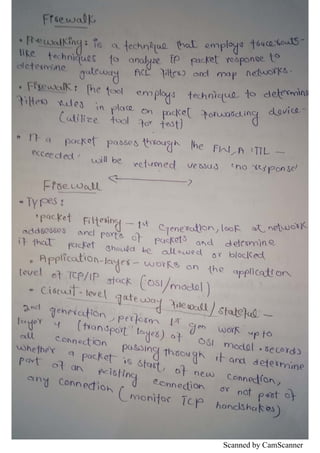 Firewalk
• Firewalking: is a technique that employs traceroute-
like techniques to analyze IP packet response to
determine gateway ACL filters and map networks.
• Firewalk: The tool employs technique to determine
filters rules in place on packet forwarding device.
(utilize tool for test)
• If a packet passes through the FW, A 'TTL –
exceeded' will be returned versus 'no response'
Firewall
• Types:
• packet Filtering – 1st Generation, look at network
addresses and ports of packets and determine
if that packet should be allowed or blocked
• Application-layer – works on the application
level of TCP/IP stack (OSI/model)
• Circuit-level gateway firewall / Stateful –
2nd generation, perform 1st gen work upto
layer 4 (transport layer) of OSI model. records
all connection passing through it and determine
whether a packet is start of new connection,
part of an existing connection or not part of
any connection (monitor TCP handshakes)
Scanned by CamScanner